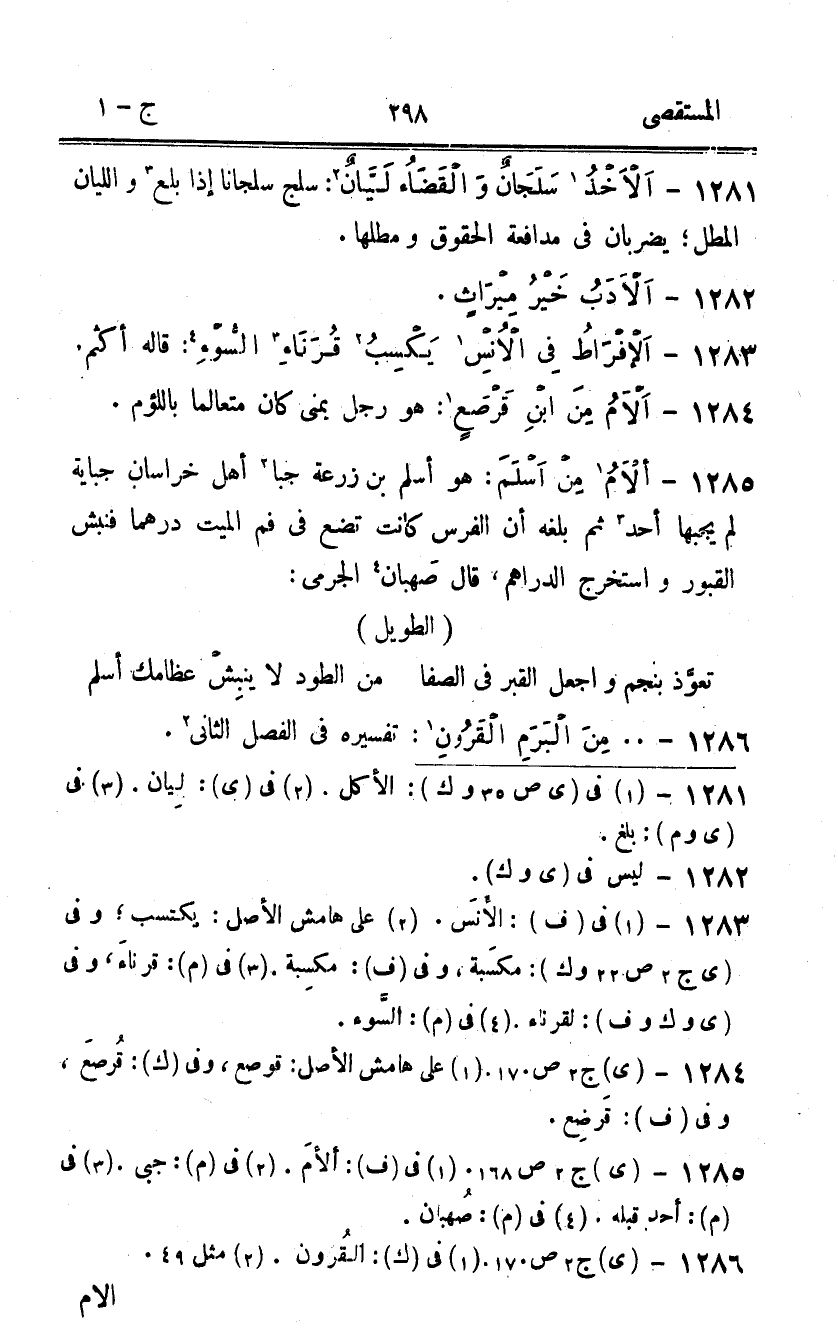 المستقصى ٢٩٨ ج - ١
١٢٨١ - اَلْاَخْذُ ١ سَلَجَانٌ وَ الْقَضَاءُ لَـيَّانٌ ٢: سلج سلجانا إذا بلع ٣ و الليان
المطل؛ يضربان فى مدافعة الحقوق و مطلها .
١٢٨٢ - اَلْاَدَبُ خَيْرُ مِيْرَاثٍ .
١٢٨٣ - اَلْإفْرَاطُ فِي الْاُنْسِ ١ يَكْسِبُ ٢ قُرَنَاءِ ٣ السُّوْءِ ٤: قاله أكثم .
١٢٨٤ - اَلْاَمُ مِنَ ابْنِ قَرْصَعٍ ١: هو رجل يمنى كان متعالما باللؤم .
١٢٨٥ - ألْاَمُ ١ مِنْ اَسْلَمَ : هو أسلم بن زرعة جبا ٢ أهل خراسان جباية
لم يجبها أحد ٣ ثم بلغه أن الفرس كانت تضع فى فم الميت درهما فنبش
القبور و استخرج الدراهم، قال صَهبان ٤ الجرمى :
( الطويل )
تعوَّذ بنجم و اجعل القبر فى الصفا من الطود لا ينبِشْ عظامك أسلم
١٢٨٦ - ٠٠ مِنَ الْبَرَمِ الْقَرُونِ ١ : تفسيره فى الفصل الثانى ٢ .
١٢٨١ - (١) فى (ى ص ٣٥ و ك) : الأكل . (٢) فى (ى) : لِيان . (٣) فى
(ى و م) : بلغ .
١٢٨٢ - ليس فى (ى و ك) .
١٢٨٣ - (١) فى (ف) : الأَنَس . (٢) على هامش الأصل : يكتسب ؛ و فى
(ى ج ٢ ص ٢٢ وك) : مكسَبة ، و فى (ف) : مكسِبة . (٣) فى (م) : قرناءَ ، و فى
(ى و ك و ف) : لقرناء . (٤) فى (م) : السَّوء .
١٢٨٤ - (ى) ج ٢ ص ١٧٠ . (١) على هامش الأصل : قوصع ، وفى (ك) : قُرصعَ ،
و فى (ف) : قَرضِع .
١٢٨٥ - (ى) ج ٢ ص ١٦٨ . (١) فى (ف) : ألأمَ . (٢) فى (م) : جبى . (٣) فى
(م) : أحد قبله . (٤) فى (م) : صُهبان .
١٢٨٦ - (ى) ج ٢ ص ١٧٠ . (١) فى (ك) : القُرون . (٢) مثل ٤٩ .
الام